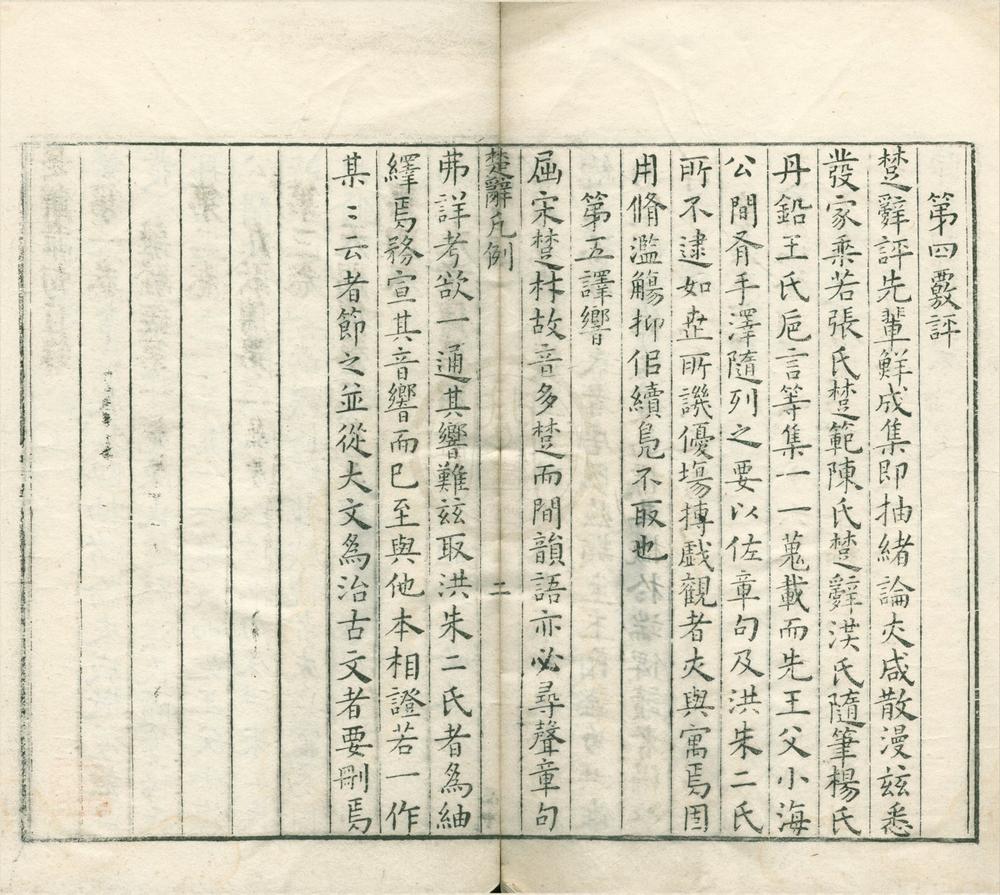 第四覈評
楚辭評先輩鮮成集即抽緒論夾咸散漫玆悉
發家乘若張氏楚範陳氏楚辭洪氏隨筆楊氏
丹鉛王氏巵言等集一一蒐載而先王父小海
公間有手澤隨列之要以佐章句及洪朱二氏
所不逮如壼所譏優塲摶戲觀者夾與寓焉固
用脩濫觴抑佀續鳬不取也
第五譯響
屈宋楚材故音多楚而間韻語亦必尋聲章句
楚辭凡例
二
弗詳考欲一通其響難玆取洪朱二氏者為紬
繹焉務宣其音響而已至與他本相證若一作
某〻云者節之並從大文為治古文者要刪焉